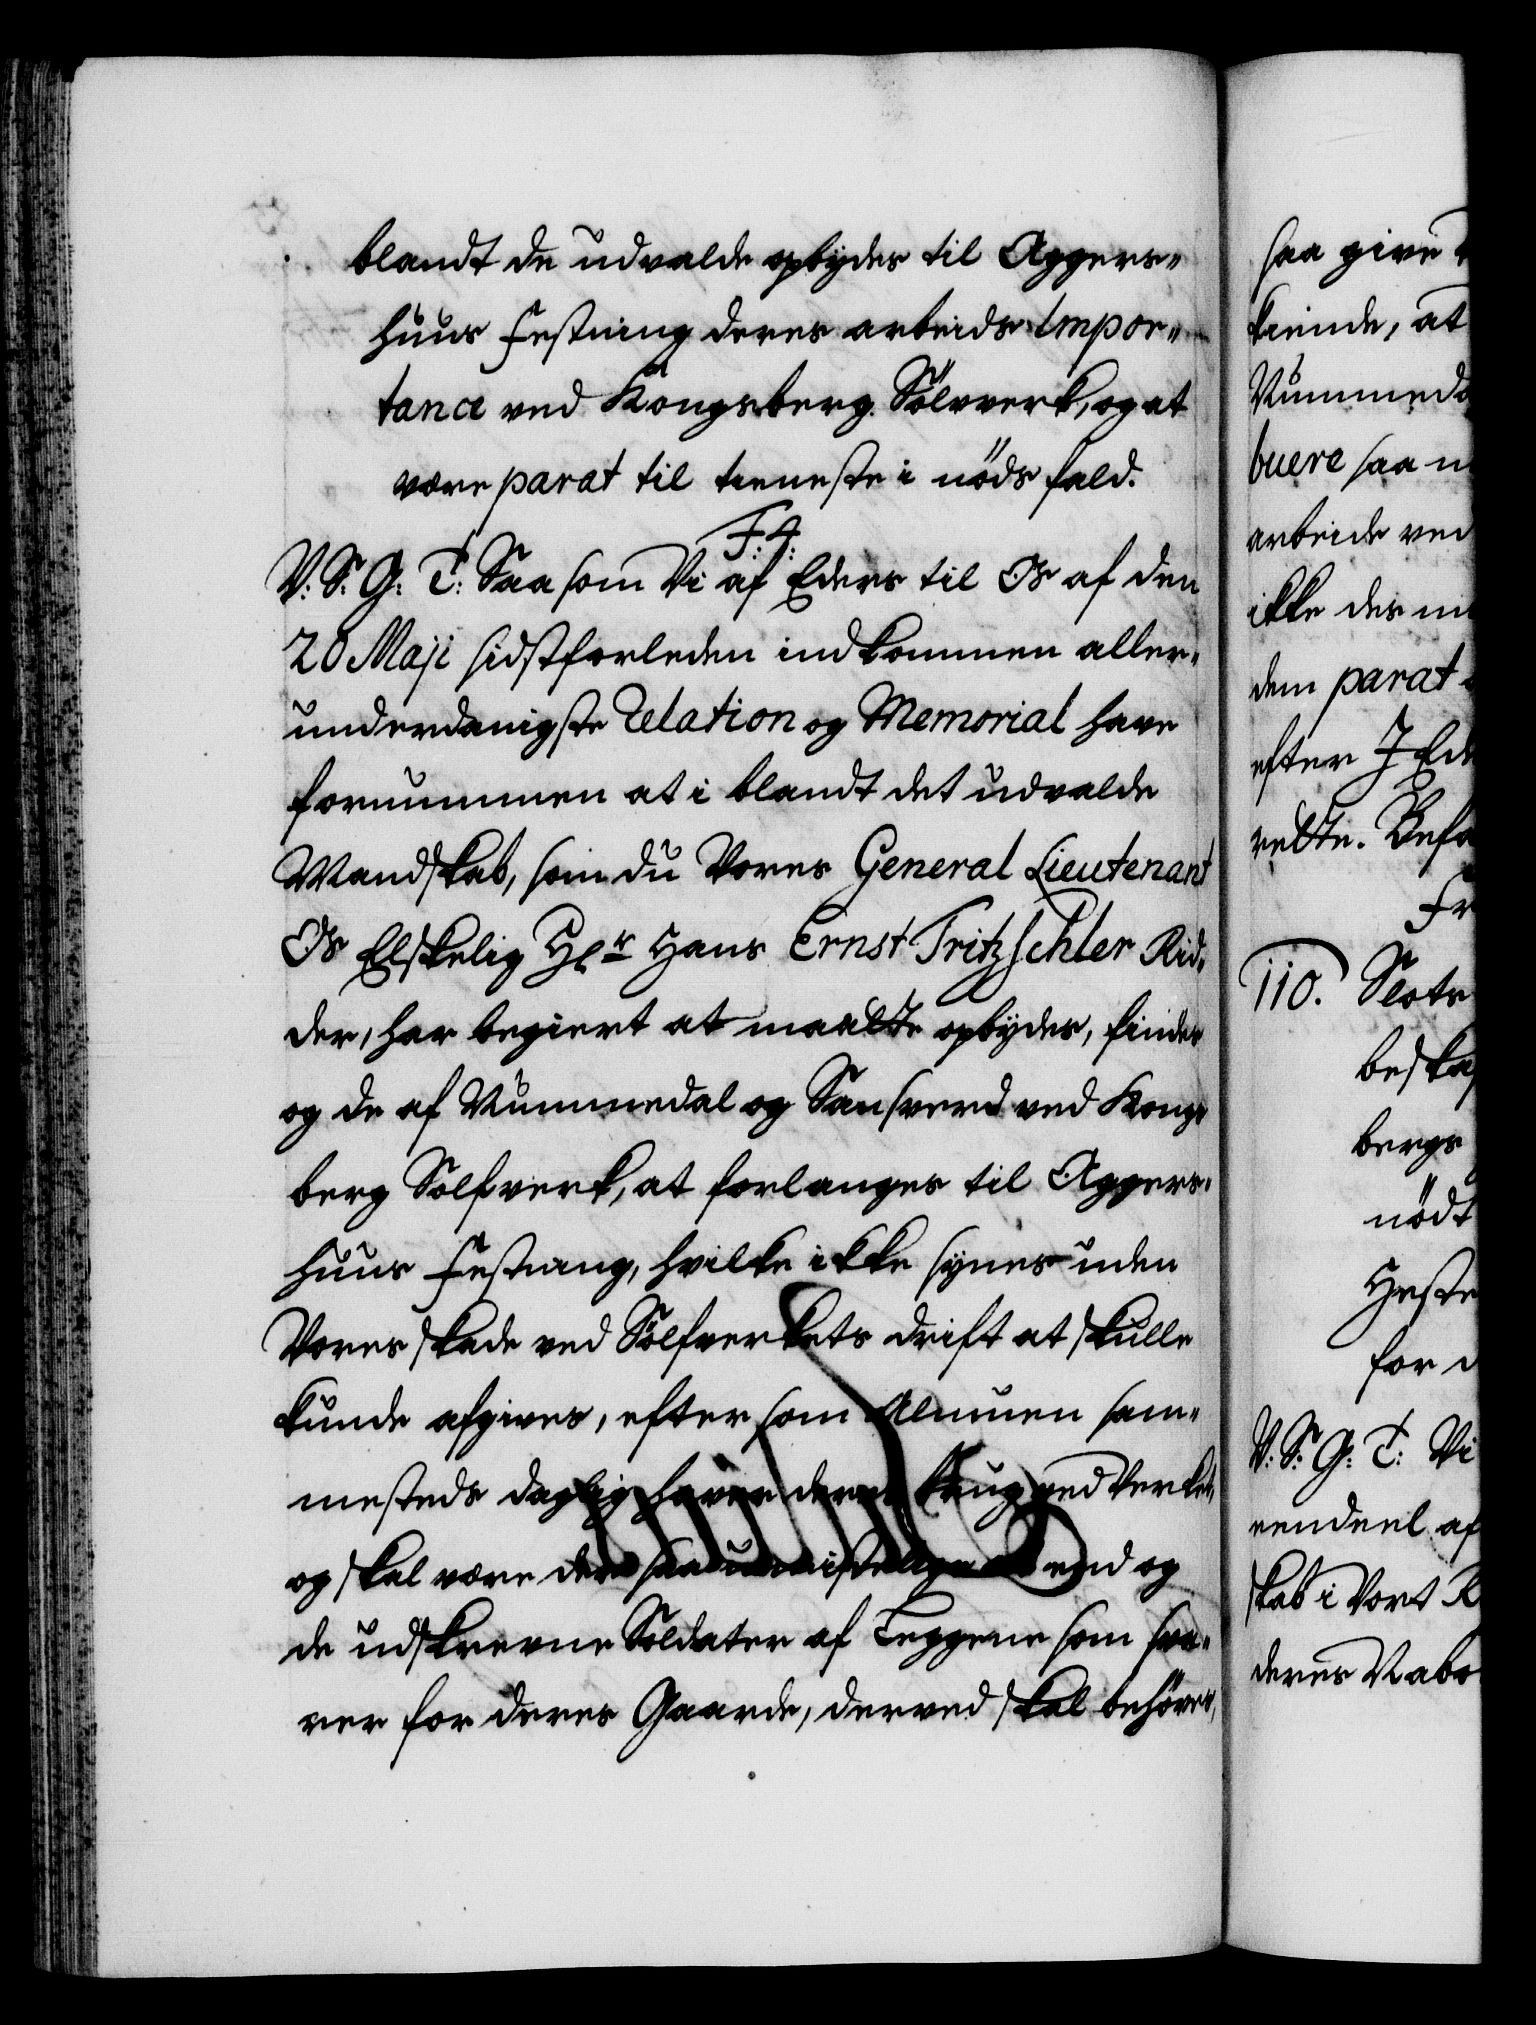 blandt de udvalde opbydes til Aggers„
huus Festning deres arbeids Impor„
tance ved Kongsberg Sölvverk, og at
være parat til tieneste i nöds fald.
F: 4:
V: S: G: T: Saa som Vi af Eders til Os af den
20 Maji sidstforleden indkommen aller„
underdanigste Relation og Memorial have
fornummen at i blandt det udvalde
Mandskab, som du Vores General Lieutenant
Os Elskelig Hr Hans Ernst Tritzschler Rid„
der, har begiert at maatte opbydes, findes
og de af Nummedal og Sansverd ved Kongs
berg Sölfverk, at forlanges til Aggers„
huus Festning, hvilke ikke synes uden
Vores skade ved Sölfverkets drift at skulle
kunde afgives, efter som Almuen sam„
mesteds daglig haver deres brug ved Verket,
og skal være der saa umistelige end og
de udskrevne Soldater af Leggene som sva„
rer for deres Gaarde, derved skal behöves,
saa give
kiende, at
Nummeda
buere saa
arbeide ved
ikke des
dem parat
efter I
rette. Befa
Fr
110. Slots
beska
bergs
nödt
Heste
for
V: S: G: T: Vi
eendeel af
skab i Vort R
deres Nabo